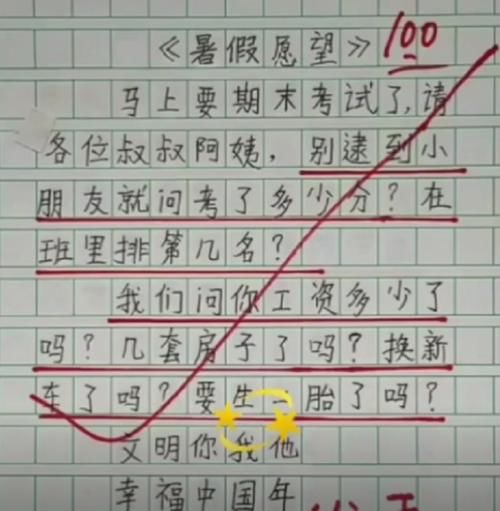 《暑假愿望》 100
马上要期末考试了,请
各位叔叔阿姨，别逮到小
朋友就问考了多少分？在
班里排第几名？
我们问你工资多少了
吗？几套房子了吗？换新
车了吗？要生二胎了吗？
文明你我他
幸福中国年